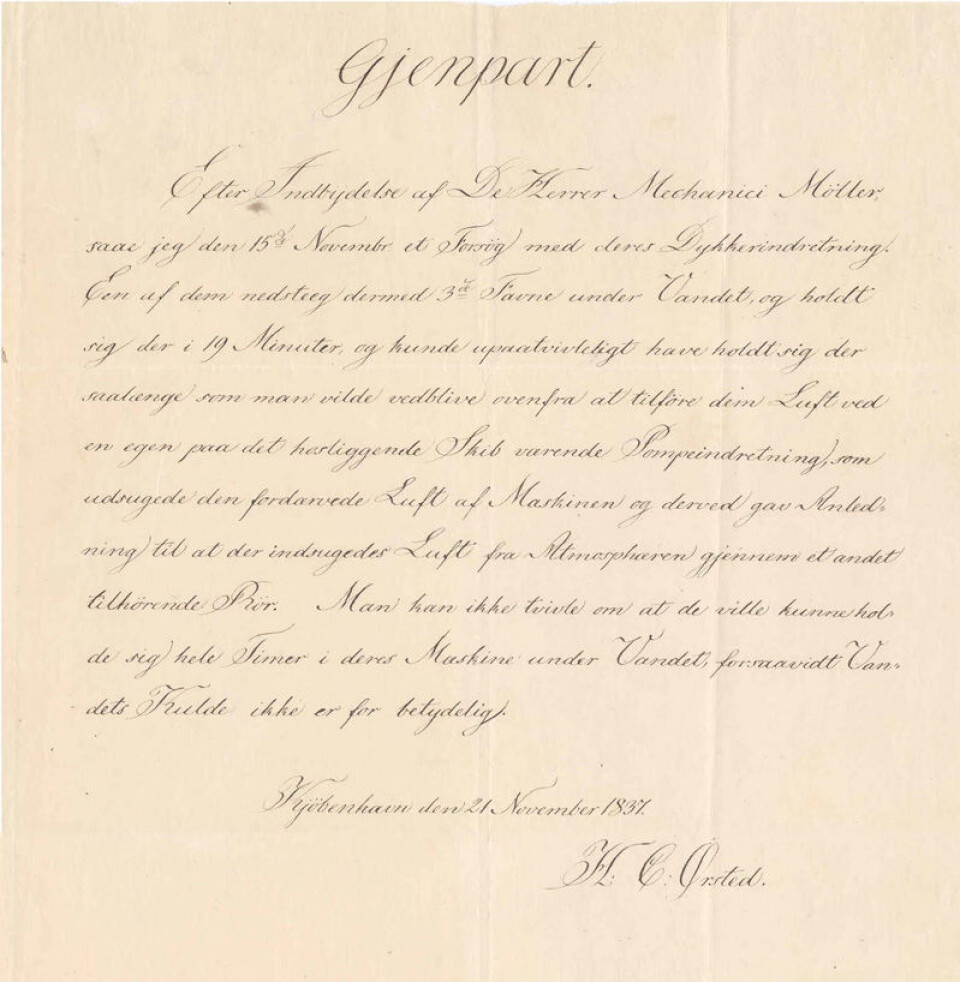 Gjenpart.
Efter Indbydelse af De Herrer Mechanici Möller,
saae jeg den 15de Novembr et Forsøg med deres Dykkerindretning.
Een af dem nedsteeg dermed 3de Favne under Vandet, og holdt
sig der i 19 Minuter, og kunde upaatvivleligt have holdt sig der
saalænge som man vilde vedblive ovenfra at tilföre dem Luft ved
en egen paa det hosliggende Skib værende Pompeindretning, som
udsugede den fordærvede Luft af Maskinen og derved gav Anled-
ning til at der indsugedes Luft fra Atmosphæren gjennem et andet
tilhörende Rör. Man kan ikke tvivle om at de ville kunne hol-
de sig hele Timer i deres Maskine under Vandet, forsaavidt Van-
dets Kulde ikke er for betydelig.
Kjöbenhavn den 21 November 1837.
H: C: Ørsted.